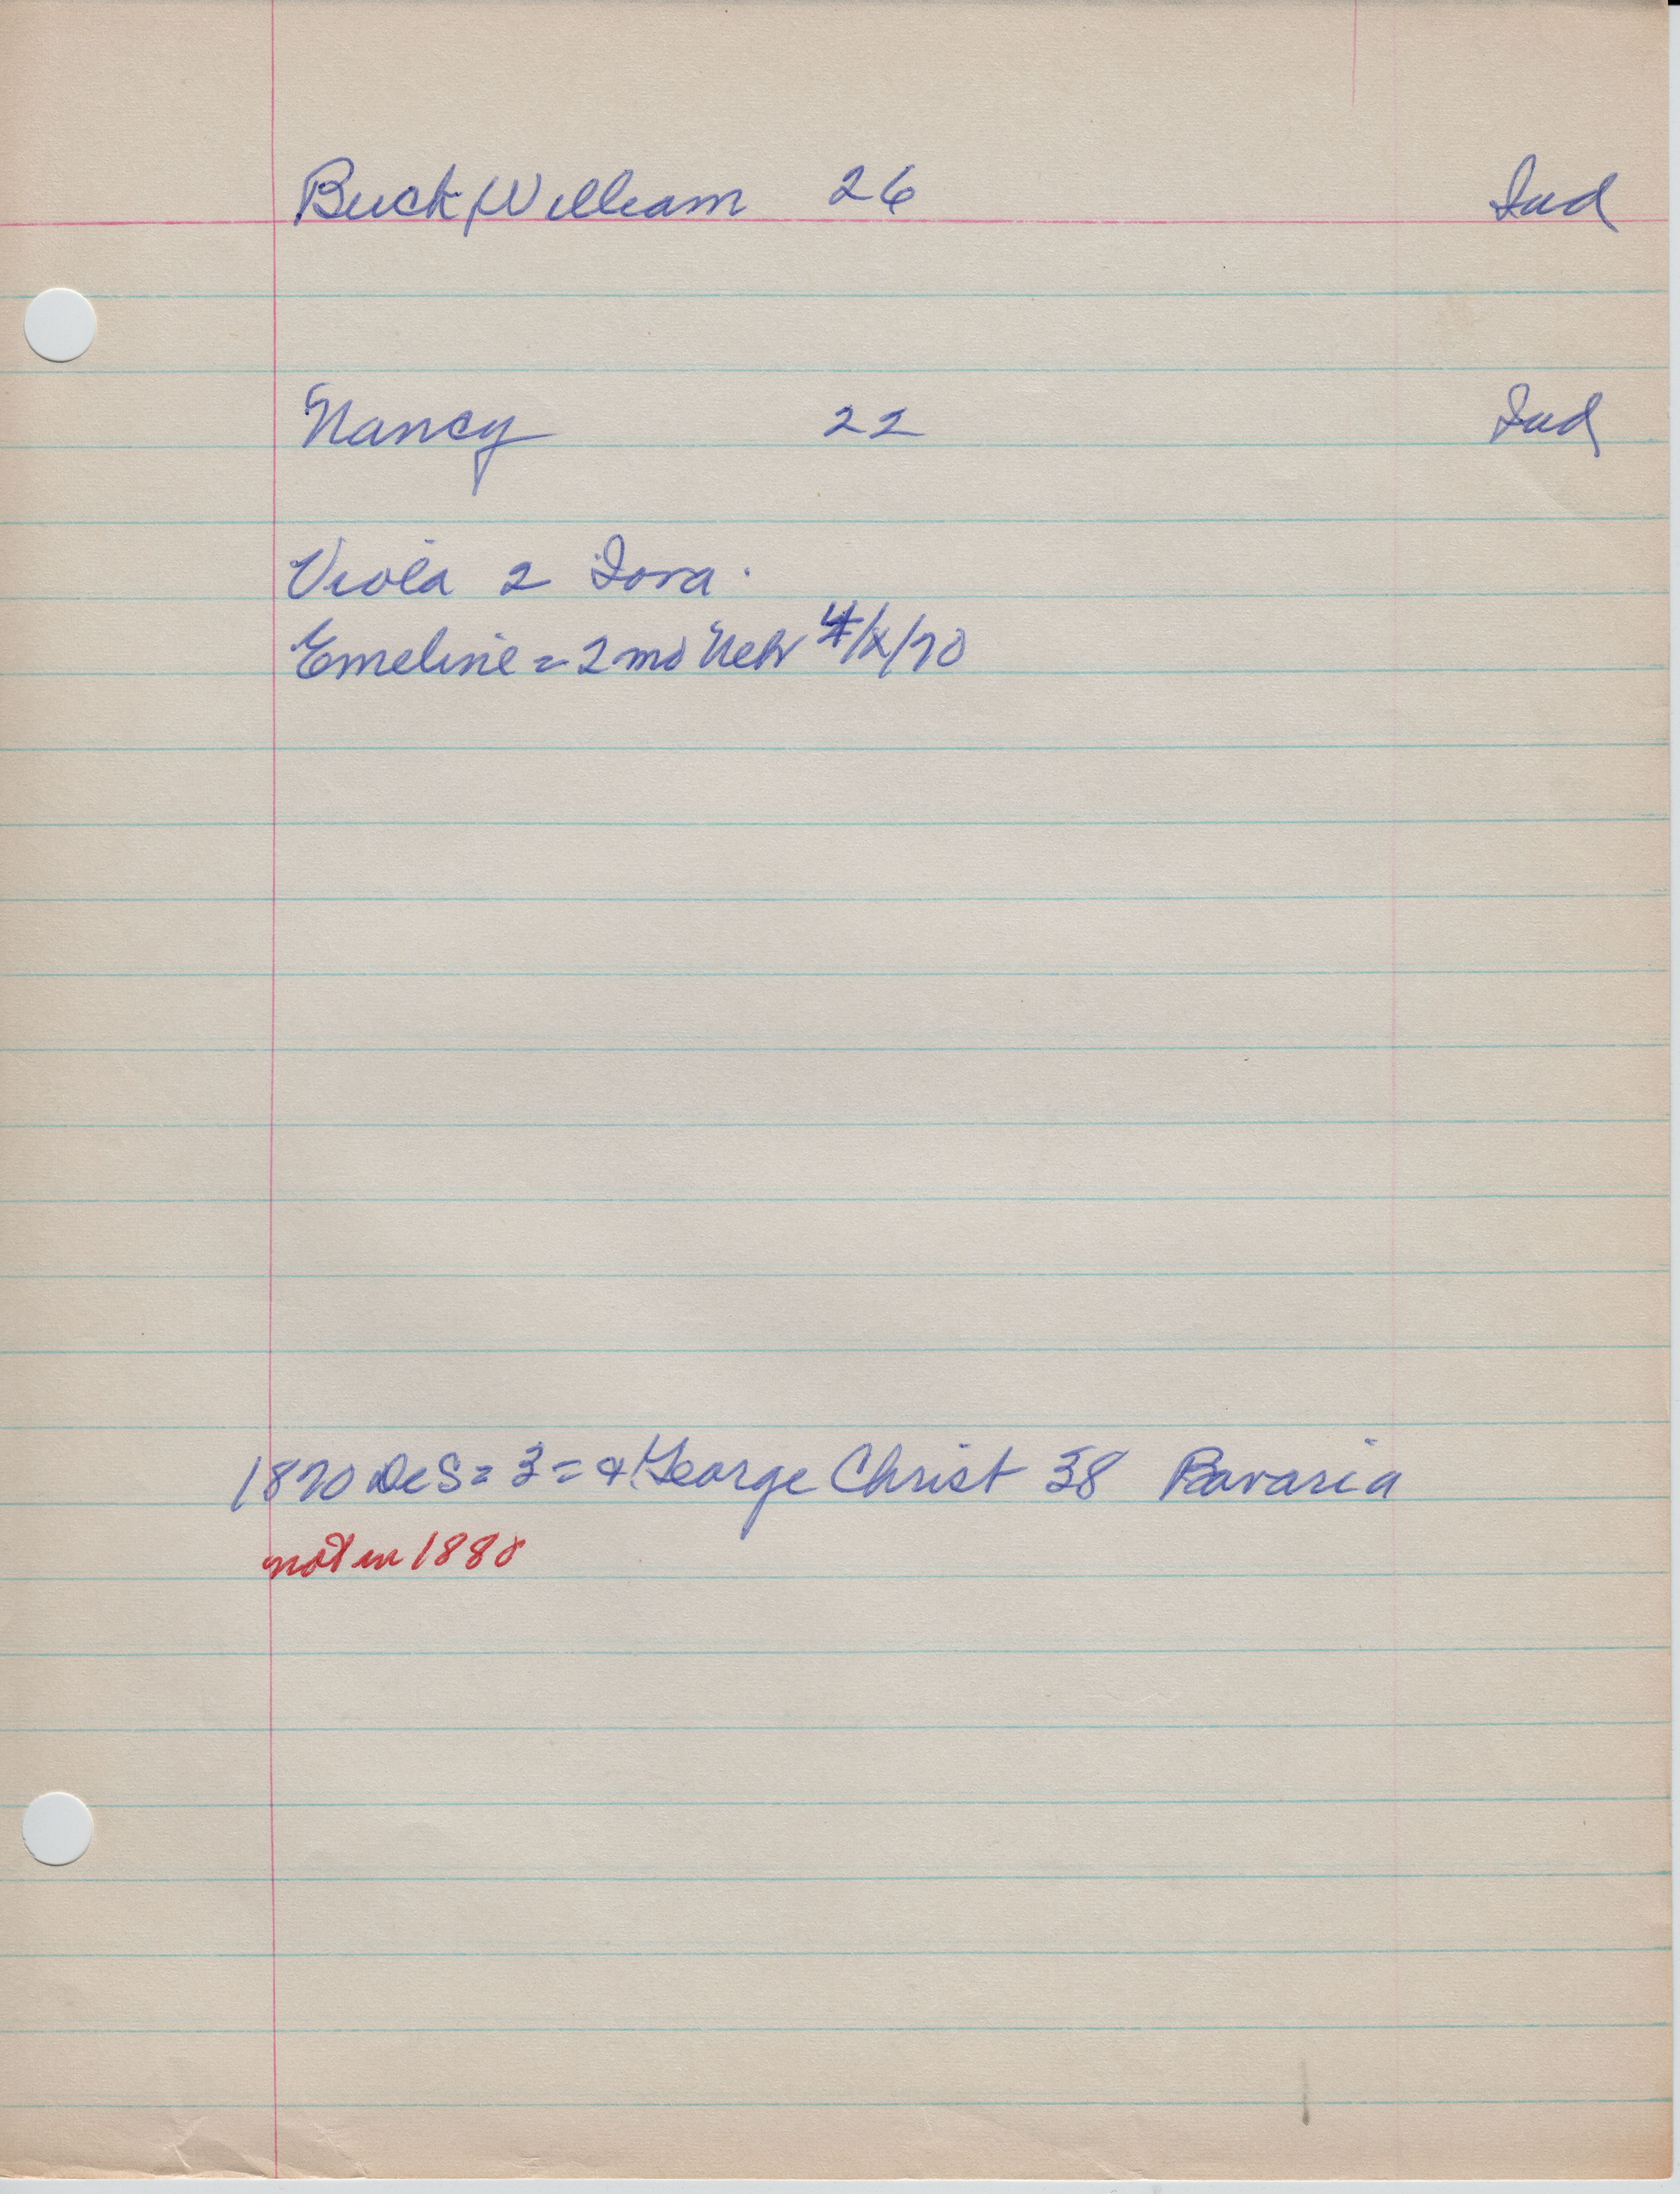 Buck, William 26 Ind
Nancy 22 Ind
Viola 2 Iowa.
Emeline = 2 mo Neb 4/x/70
1870 DeS = 3 = + George Christ 38 Bavaria
not in 1880